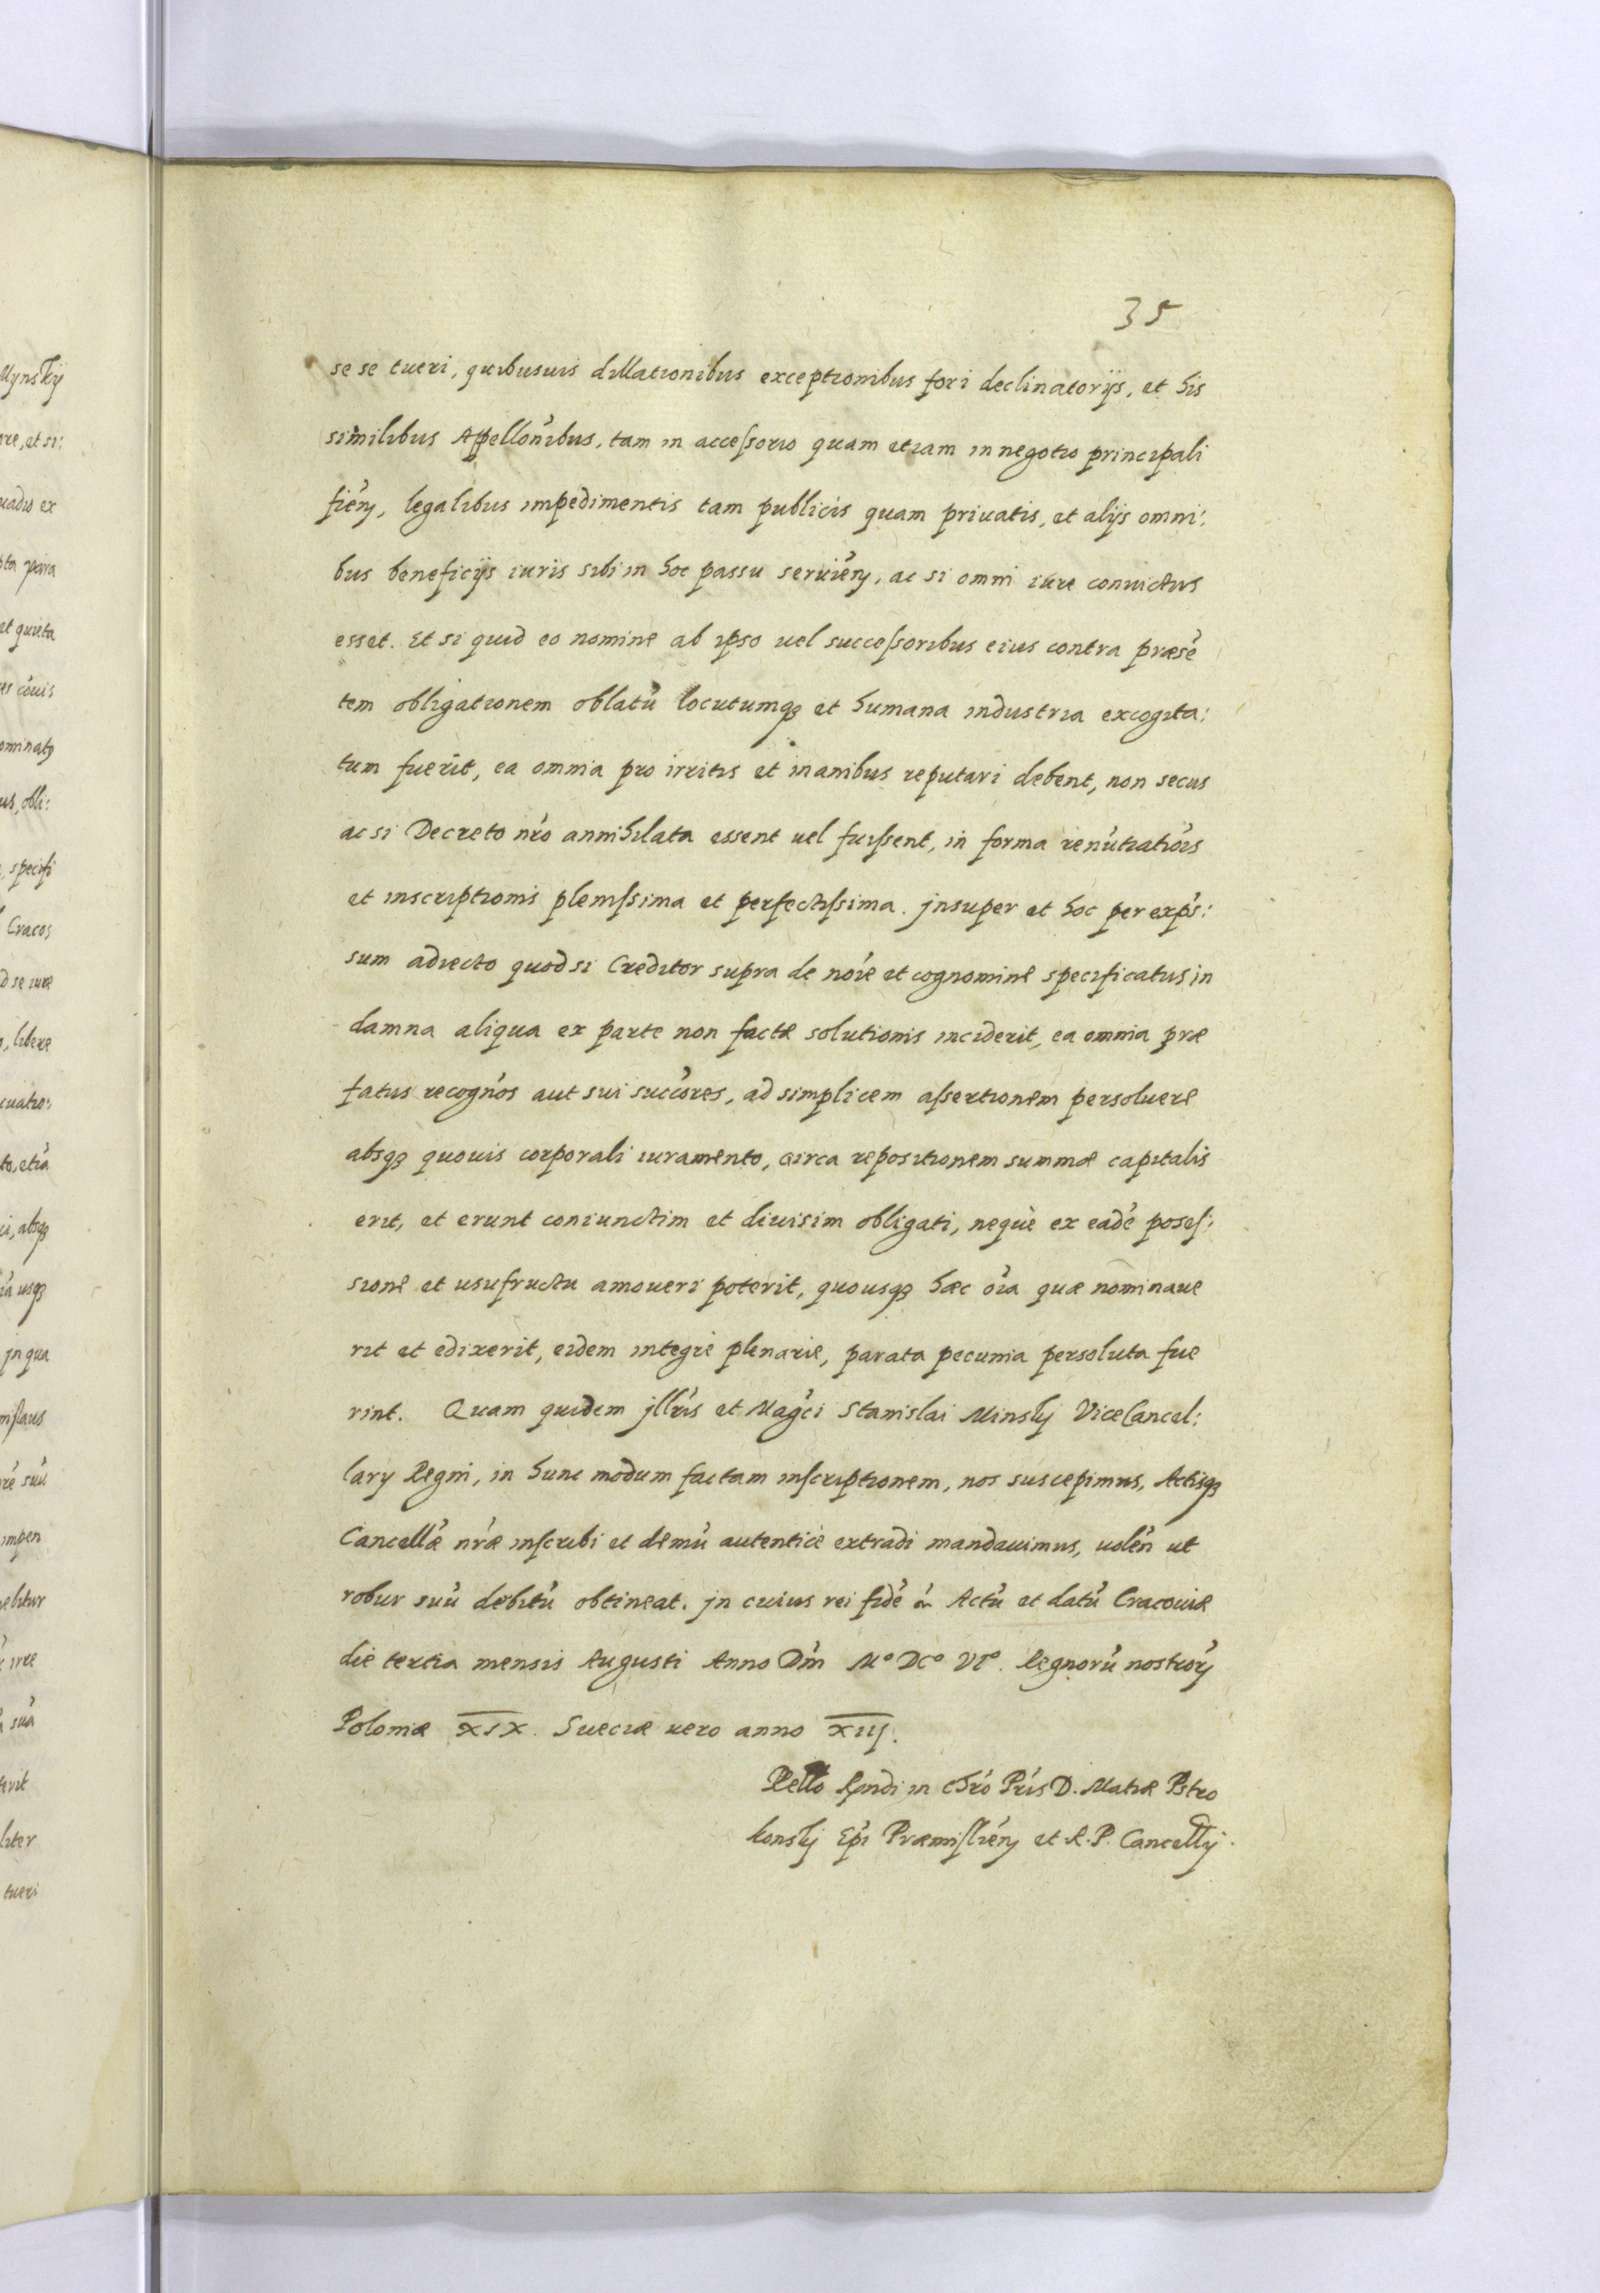 35
se se tueri, quibusuis dillationibus exceptionibus fori declinatorijs, et his
similibus Appellōnibus, tam in accessorio quam etiam in negotio principali
fień, legalibus impedimentis tam publicis quam priuatis, et alijs omni:
bus beneficijs iuris sibi in hoc passu seruień, ac si omni iure conuictus
esset. Et si quid eo nomine ab ipso uel successoribus eius contra præsē
tem obligationem oblatū locutumq₃ et humana industria excogita:
tum fuerit, ea omnia pro irritis et inanibus reputari debent, non secus
ac si Decreto nr̄o annihilata essent uel fuissent, in forma renūtiatiōis
et inscriptionis plenissima et perfectissima. jnsuper et hoc per exp̄s:
sum adiecto quod si Creditor supra de nōie et cognomine specificatus in
damna aliqua ex parte non factæ solutionis inciderit, ea omnia præ
fatus recogn̄os aut sui succ̄ores, ad simplicem assertionem persoluere
absq₃ quouis corporali iuramento, circa repositionem summæ capitalis
erit, et erunt coniunctim et diuisim obligati, nequè ex eadē poses:
sione et usufructu amoueri poterit, quousq₃ hæc ōia quæ nominaue
rit et edixerit, eidem integrè plenariè, parata pecunia persoluta fue
rint. Quam quidem jllr̄is et Maḡci Stanislai Minskij ViceCancel:
lary Regni, in hunc modum factam inscriptionem, nos suscepimus, Actisq₃
Cancellǣ nr̄æ inscribi et demū autenticè extradi mandauimus, uolēn ut
robur suū debitū obtineat. jn cuius rei fidē Actū et datū Cracouiæ
die tertia mensis Augusti Anno Dn̄i M° DC° VI°. Regnorū nostroŕ
Poloniæ XIX. Sueciæ uero anno XIIJ.
Rello Rṇdi in Chr̄o Pr̄is D. Matiæ Pstro
konskij Ep̄i Præmislień et R. P. Cancellij.